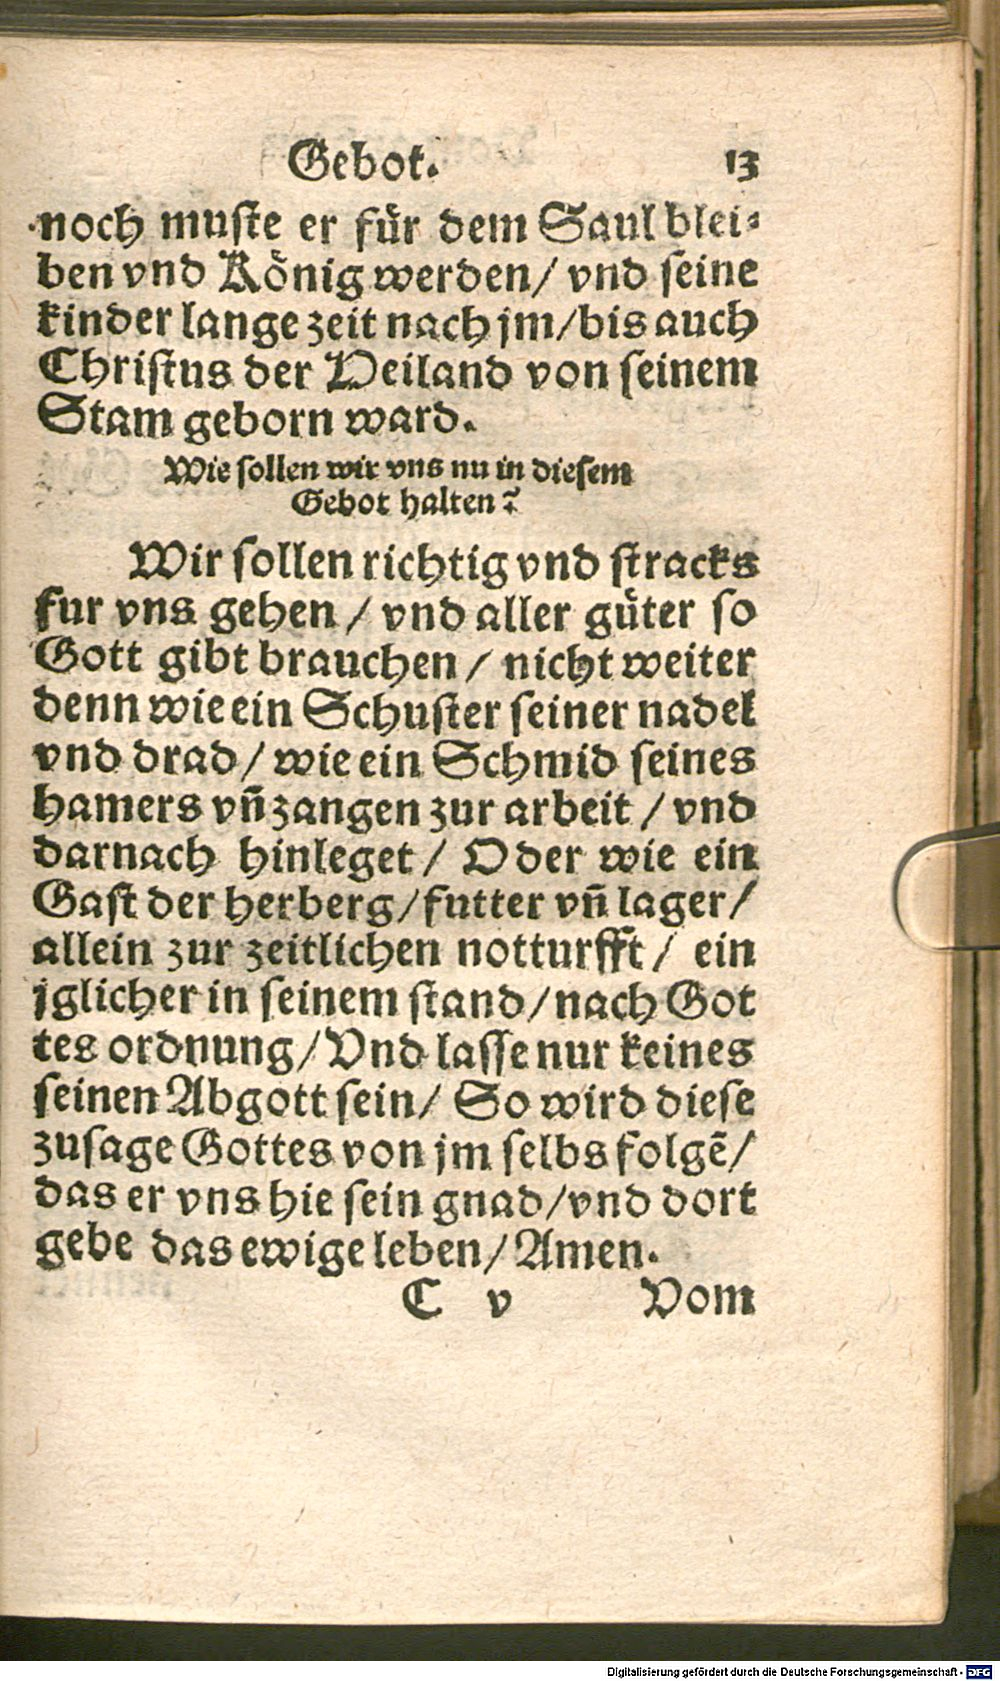 Gebot. 13
noch muſte er für dem Saul blei⸗
ben vnd König werden/ vnd ſeine
kinder lange zeit nach jm/bis auch
Chriſtus der Heiland von ſeinem
Stam geborn ward.
Wie ſollen wir vns nu in dieſem
Gebot halten?
Wir ſollen richtig vnd ſtracks
fur vns gehen / vnd aller güter ſo
Gott gibt brauchen / nicht weiter
denn wie ein Schuſter ſeiner nadel
vnd drad / wie ein Schmid ſeines
hamers vñ zangen zur arbeit / vnd
darnach hinleget / Oder wie ein
Gaſt der herberg/futter vñ lager/
allein zur zeitlichen notturfft/ ein
jglicher in ſeinem ſtand/nach Got
tes ordnung/Vnd laſſe nur keines
ſeinen Abgott ſein/ So wird dieſe
zuſage Gottes von jm ſelbs folgẽ/
das er vns hie ſein gnad/vnd dort
gebe das ewige leben/ Amen.
C v Vom
Digitalisierung gefördert durch die Deutsche Forschungsgemeinschaft - DFG